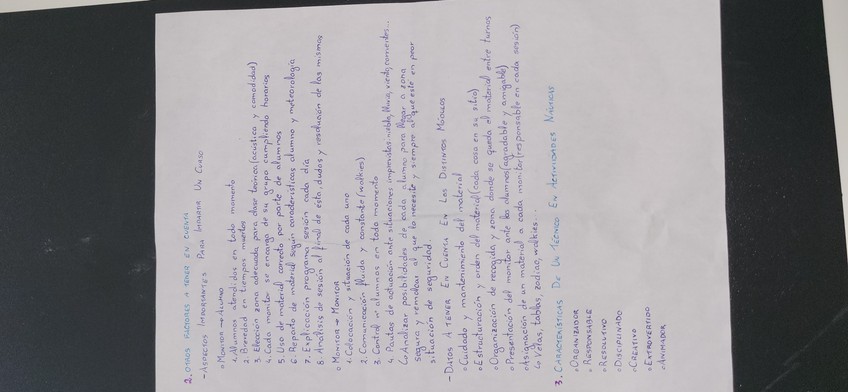 2. OTROS FACTORES A TENER EN CUENTA
- ASPECTOS IMPORTANTES PARA IMPARTIR UN CURSO
o MONITOR → ALUMNO
1. Alumnos atendidos en todo momento
2. Brevedad en tiempos muertos
3. Elección zona adecuada para clase teórica (acústica y comodidad)
4. Cada monitor se encarga de su grupo cumpliendo horarios
5. Uso de material correcto por parte de alumnos
6. Reparto de material según características alumno y meteorología
7. Explicación programa sesión cada día
8. Análisis de sesión al final de ésta, dudas y resolución de las mismas
o MONITOR → MONITOR
1. Colocación y situación de cada uno
2. Comunicación fluida y constante (walkies)
3. Control alumnos en todo momento
4. Pautas de actuación ante situaciones niebla, lluvia, viento, corrientes...
↳ Analizar posibilidades de cada alumno para llegar a zona
segura y remolcar al que lo necesite y siempre al que esté en peor
situación de seguridad.
- DATOS A TENER EN CUENTA EN LOS DISTINTOS MÓDULOS
o Cuidado y mantenimiento del material
o Estructuración y orden del material (cada cosa en su sitio)
o Organización de recogida y zona donde se queda el material entre turnos
o Presentación del monitor ante los alumnos (agradable y amigable)
o Asignación de un material a cada monitor (responsable en cada sesión)
↳ Velas, tablas, zodiac, walkies...
3. CARACTERÍSTICAS DE UN TÉCNICO EN ACTIVIDADES NÁUTICAS
o ORGANIZADOR
o RESPONSABLE
o RESOLUTIVO
o DISCIPLINADO
o CREATIVO
o EXTROVERTIDO
o ANIMADOR